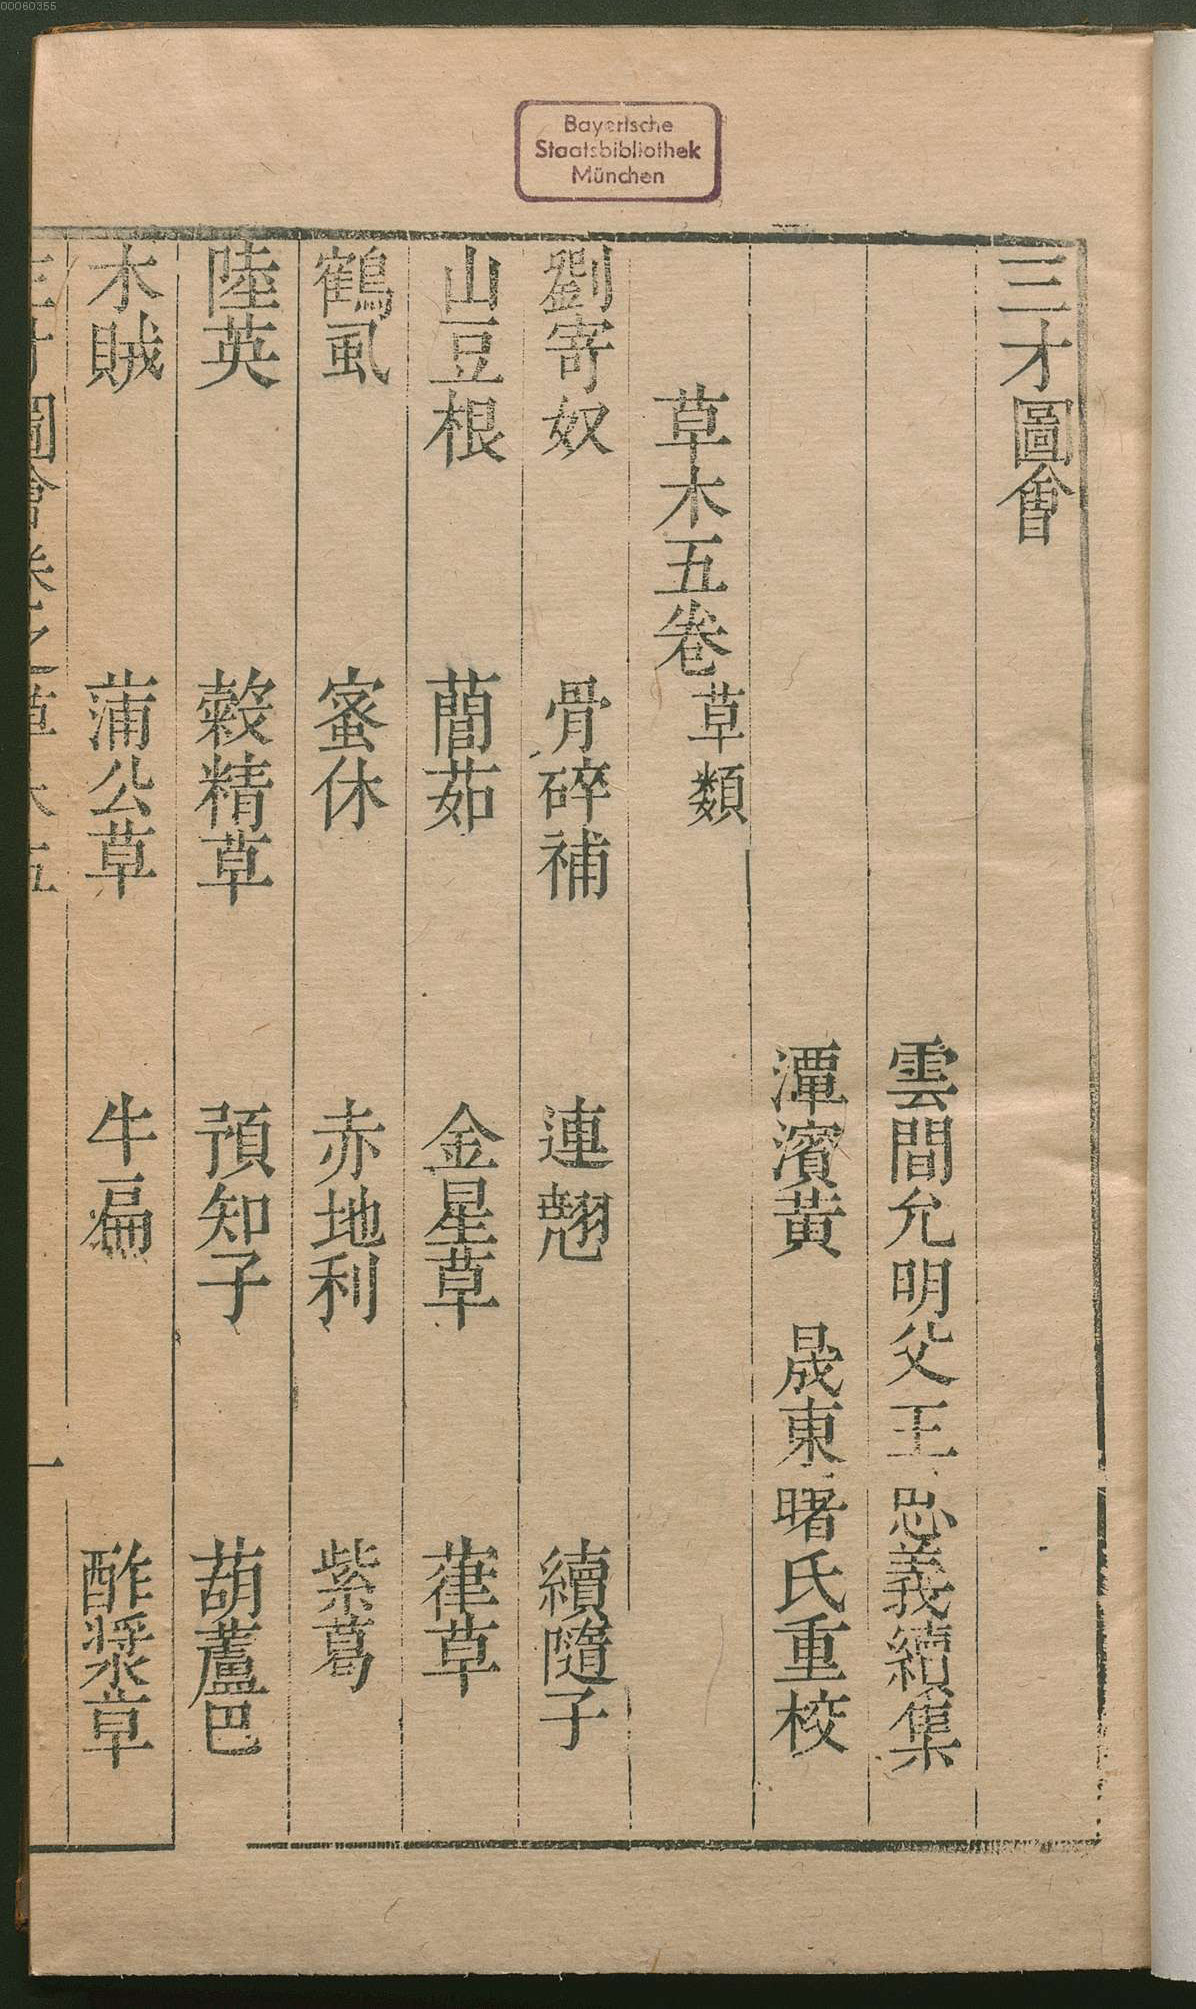 00060355
Bayerische
Staatsbibliothek
München
三才圖會
雲間允明父王思義續集
潭濱黃 晟東曙氏重校
草木五卷 草類
劉寄奴 骨碎補 連翹 續隨子
山豆根 藺茹 金星草 葎草
鶴虱 蚤休 赤地利 紫葛
陸英 穀精草 預知子 葫蘆巴
木賊 蒲公草 牛扁 酢漿草
三才圖會卷之草木五 一